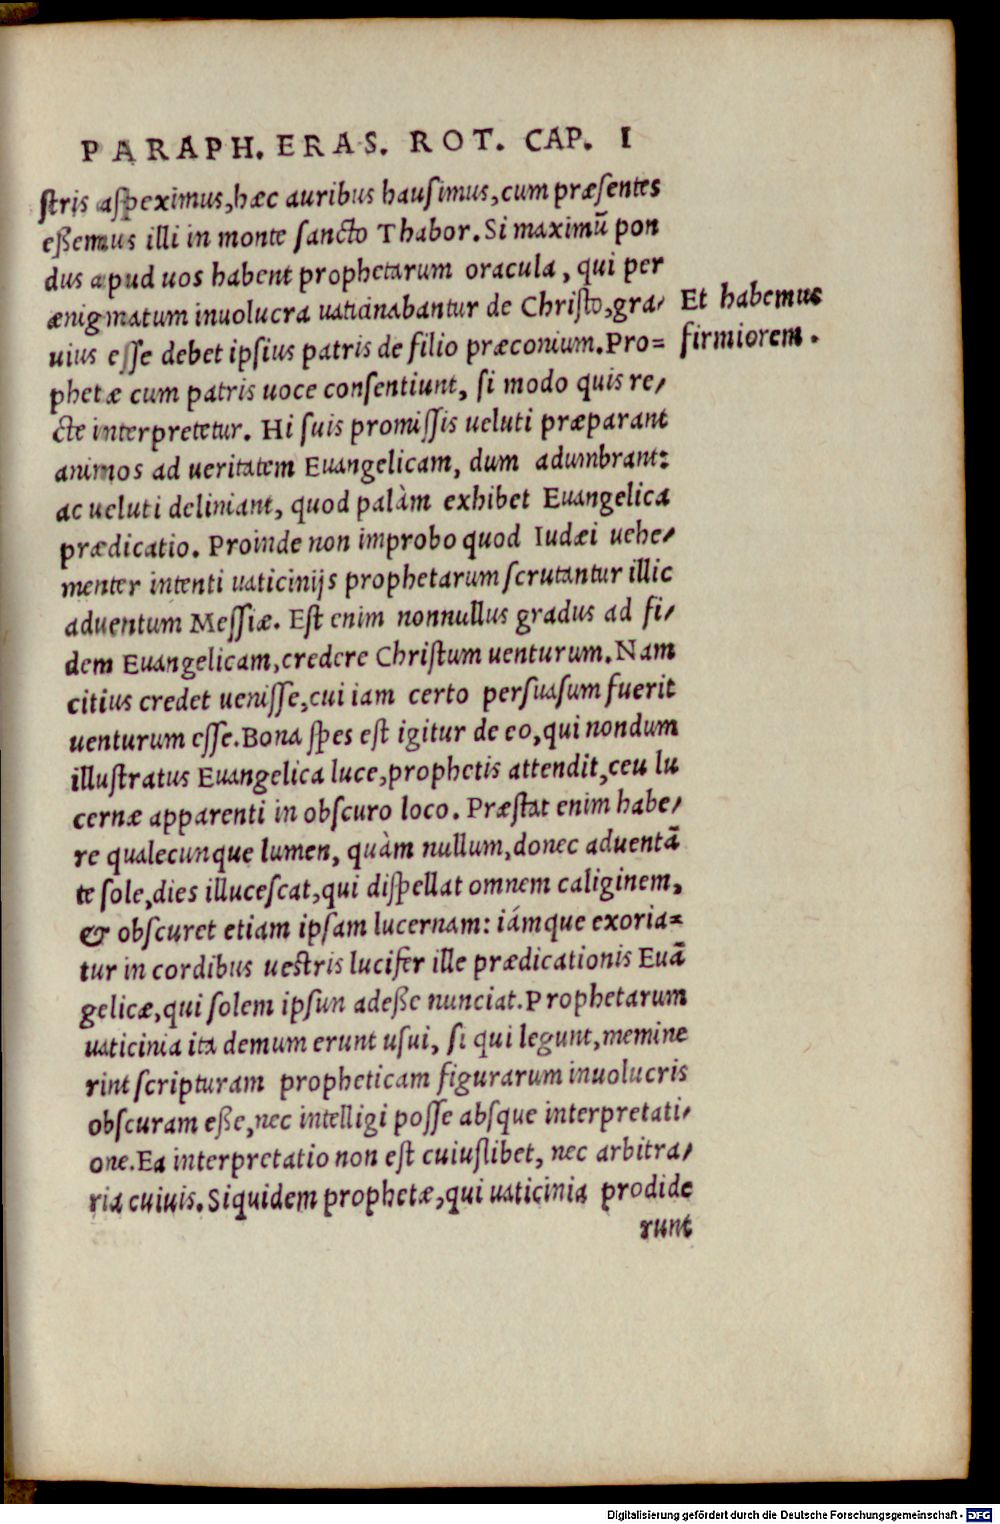 PARAPH. ERAS. ROT. CAP. I
stris aspeximus, hæc auribus hausimus, cum præsentes
eßemus illi in monte sancto Thabor. Si maximũ pon
dus apud uos habent prophetarum oracula, qui per
ænigmatum inuolucra uaticinabantur de Christo, gra-
uius esse debet ipsius patris de filio præconium. Pro=
phetæ cum patris uoce consentiunt, si modo quis re-
cte interpretetur. Hi suis promissis ueluti præparant
animos ad ueritatem Euangelicam, dum adumbrant:
ac ueluti deliniant, quod palàm exhibet Euangelica
prædicatio. Proinde non improbo quod Iudæi uehe-
menter intenti uaticinijs prophetarum scrutantur illic
aduentum Messiæ. Est enim nonnullus gradus ad fi-
dem Euangelicam, credere Christum uenturum. Nam
citius credet uenisse, cui iam certo persuasum fuerit
uenturum esse. Bona spes est igitur de eo, qui nondum
illustratus Euangelica luce, prophetis attendit, ceu lu
cernæ apparenti in obscuro loco. Præstat enim habe-
re qualecunque lumen, quàm nullum, donec aduentã
te sole, dies illucescat, qui dispellat omnem caliginem,
& obscuret etiam ipsam lucernam: iámque exoria=
tur in cordibus uestris lucifer ille prædicationis Euã
gelicæ, qui solem ipsun adeße nunciat. Prophetarum
uaticinia ita demum erunt usui, si qui legunt, memine
rint scripturam propheticam figurarum inuolucris
obscuram eße, nec intelligi posse absque interpretati-
one. Ea interpretatio non est cuiuslibet, nec arbitra-
ria cuiuis. Siquidem prophetæ, qui uaticinia prodide
runt
Et habemus
firmiorem.
Digitalisierung gefördert durch die Deutsche Forschungsgemeinschaft - DFG